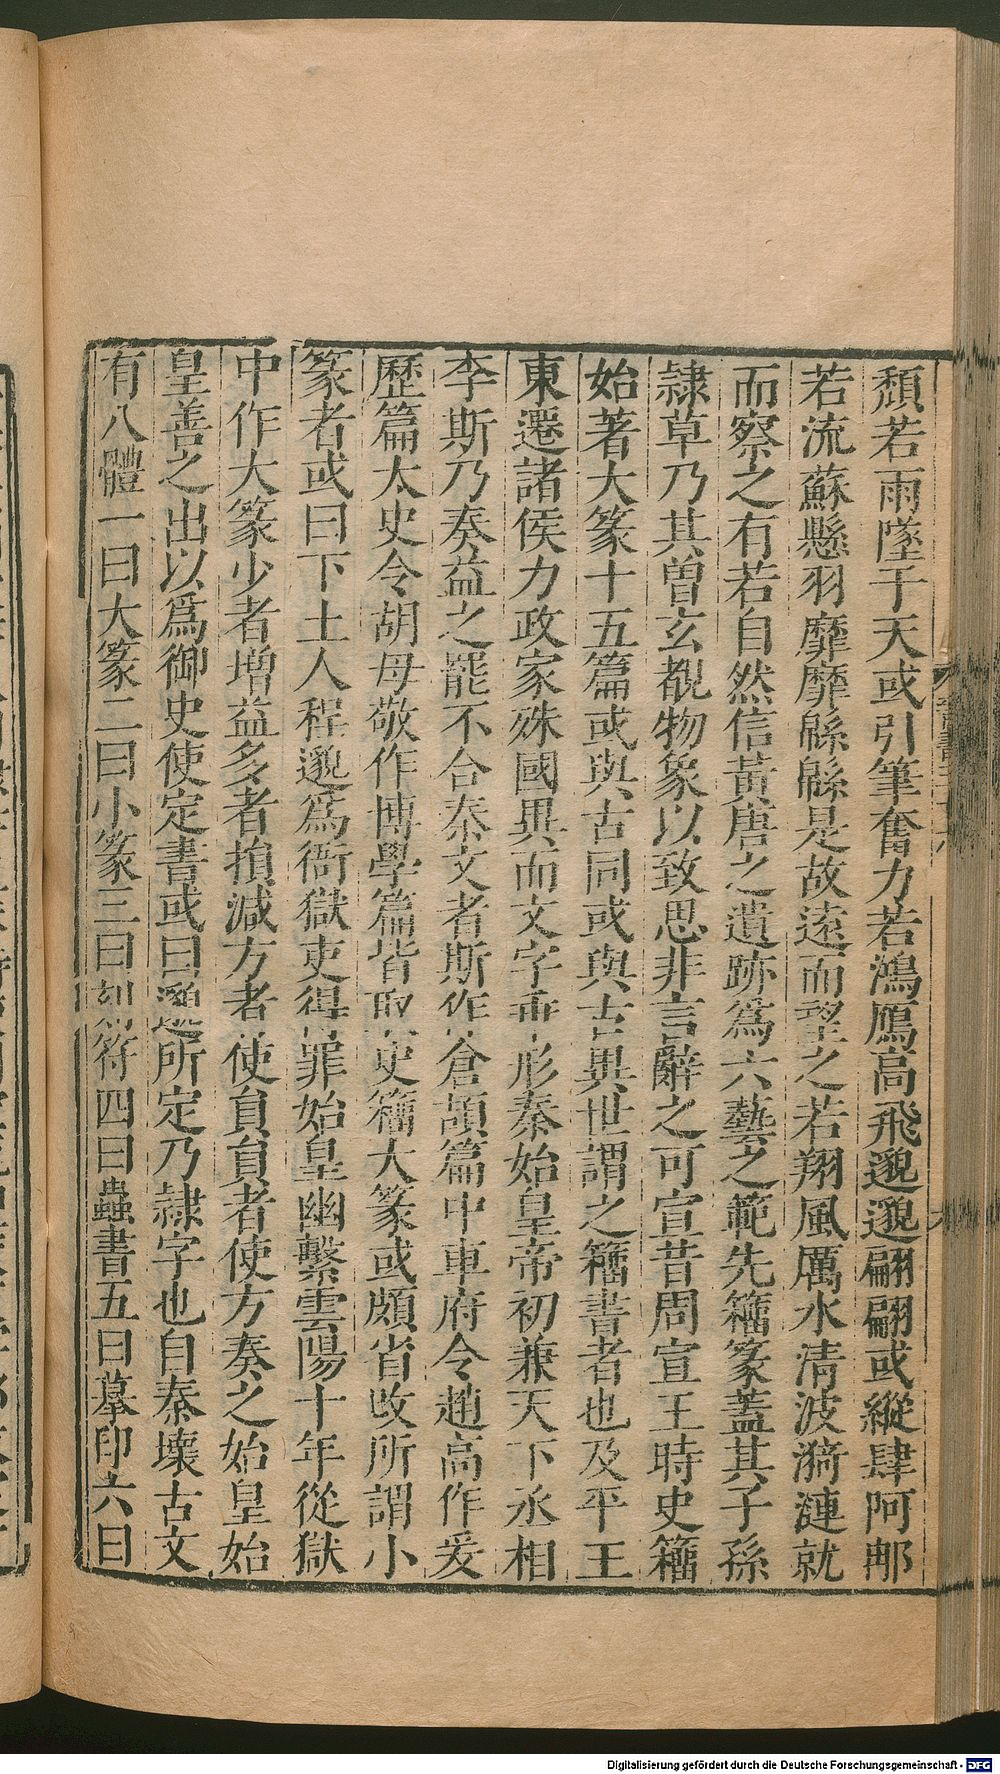 頽若雨墜于天或引筆奮力若鴻鴈高飛邈邈翩翩或縱肆阿那
若流蘇懸羽靡靡緜緜是故遠而望之若翔風厲水清波漪漣就
而察之有若自然信黃唐之遺跡爲六藝之範先籀篆蓋其子孫
隷草乃其曽玄覩物象以致思非言辭之可宣昔周宣王時史籀
始著大篆十五篇或與古同或與古異世謂之籀書者也及平王
東遷諸侯力政家殊國異而文字乖形秦始皇帝初兼天下丞相
李斯乃奏益之罷不合秦文者斯作倉頡篇中車府令趙高作爰
歷篇太史令胡母敬作博學篇皆取史籀大篆或頗省改所謂小
篆者或曰下土人程邈爲衙獄吏得罪始皇幽繫雲陽十年從獄
中作大篆少者增益多者損減方者使員員者使方奏之始皇始
皇善之出以爲御史使定書或曰邈所定乃隷字也自秦壞古文
有八體一曰大篆二曰小篆三曰刻符四曰蟲書五曰摹印六曰
Digitalisierung gefördert durch die Deutsche Forschungsgemeinschaft - DFG